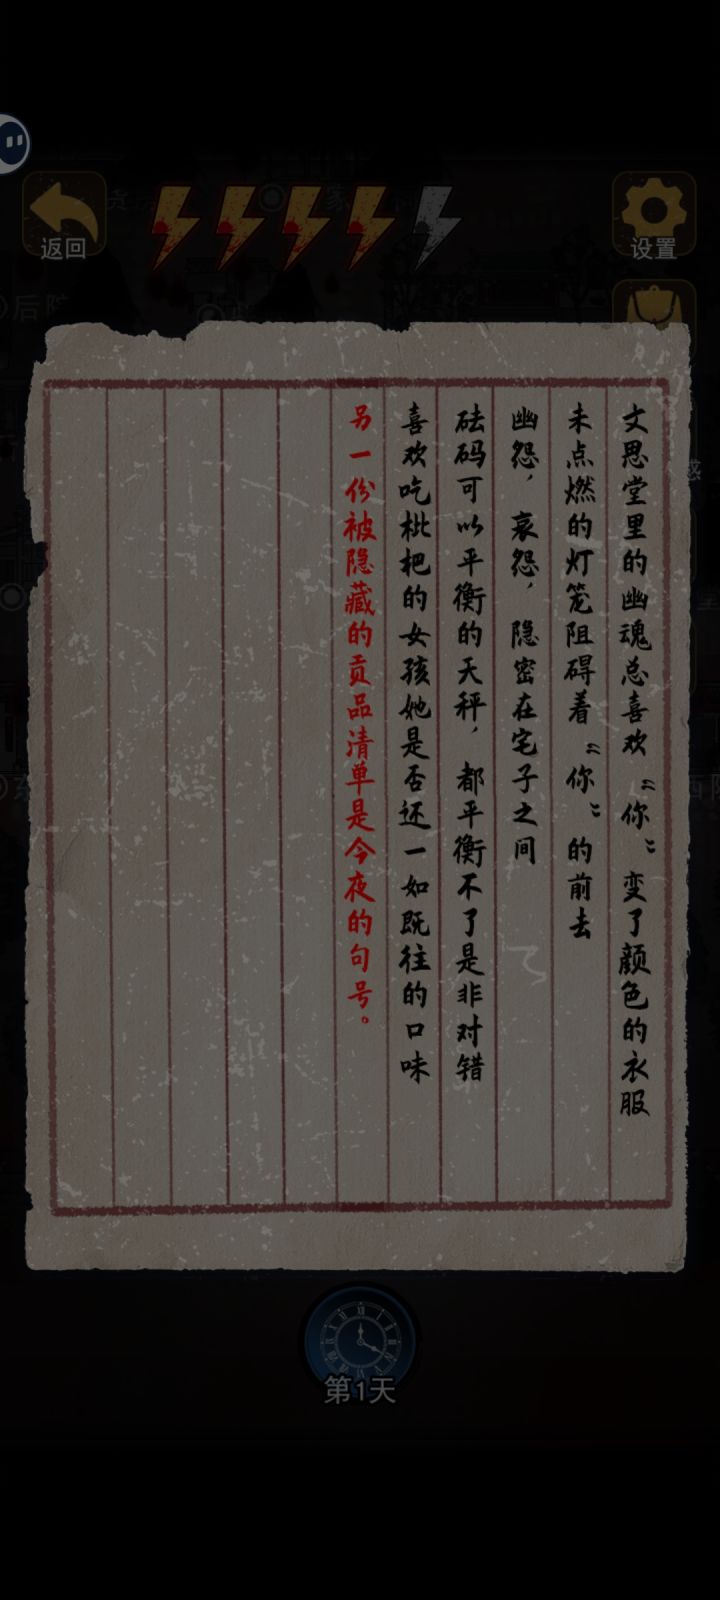 返回
设置
后院
文思堂里的幽魂总喜欢“你”变了颜色的衣服
未点燃的灯笼阻碍着“你”的前去
幽怨，哀怨，隐密在宅子之间
砝码可以平衡的天秤，都平衡不了是非对错
喜欢吃枇杷的女孩她是否还一如既往的口味
另一份被隐藏的贡品清单是今夜的句号。
第1天